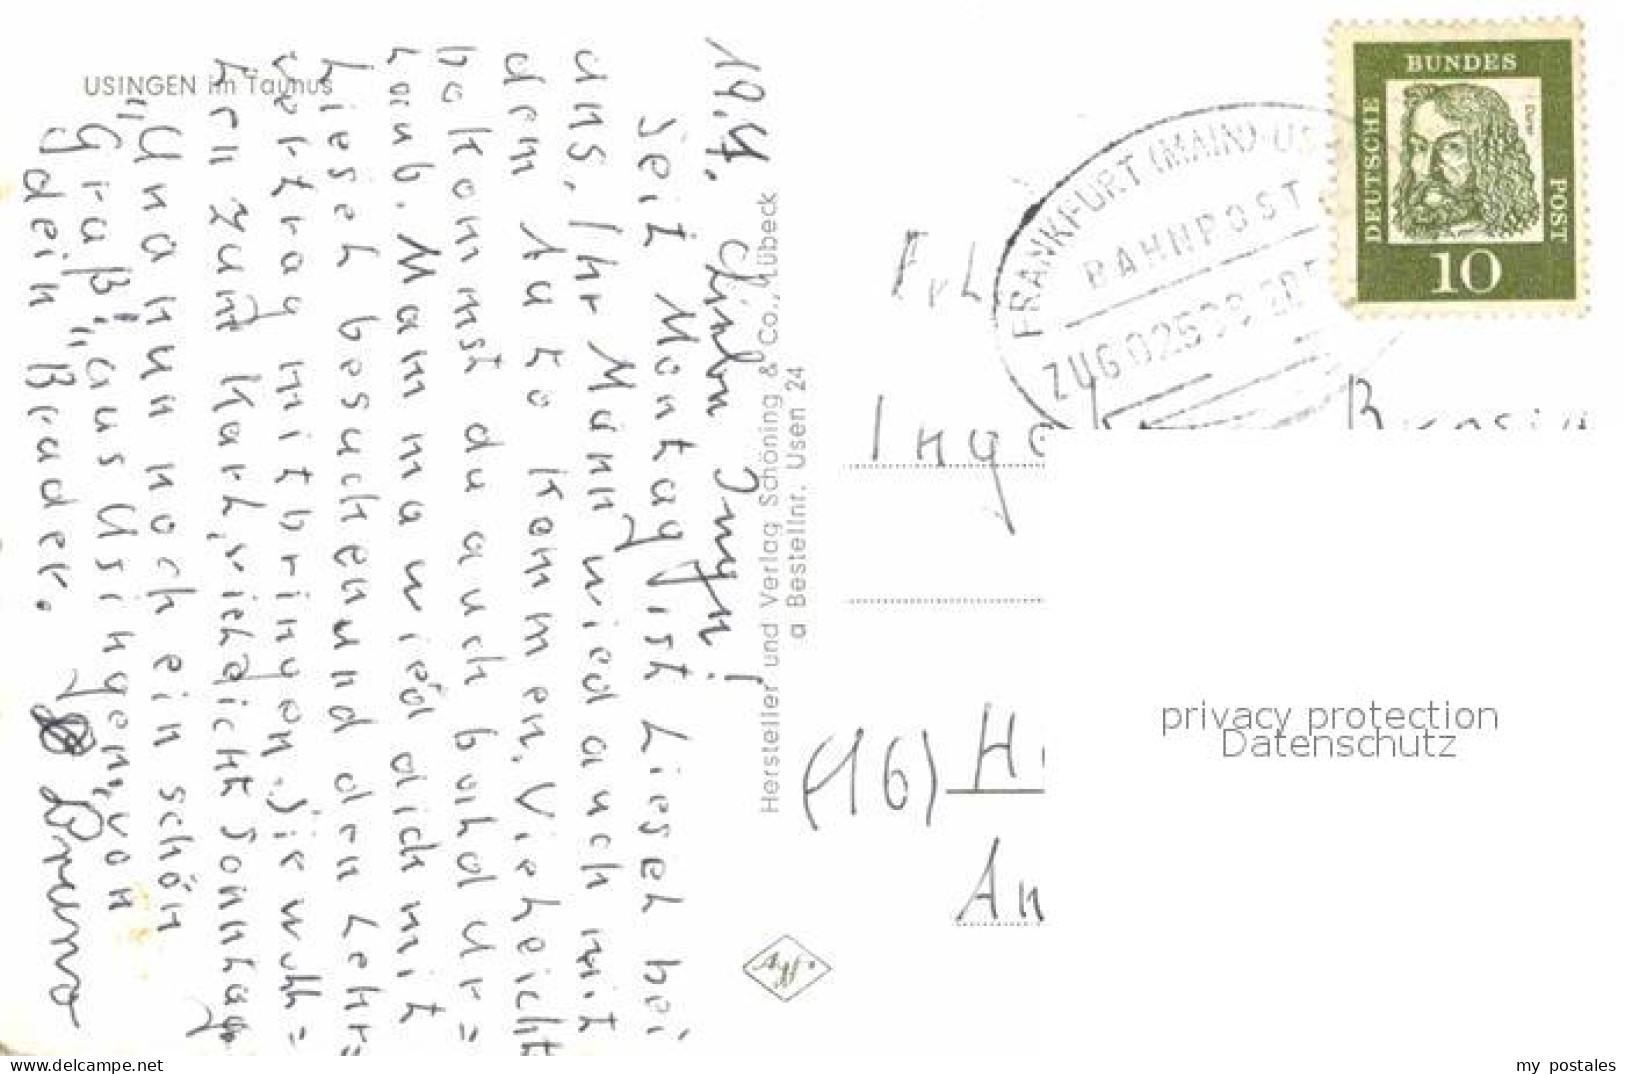 USINGEN im Taunus
19.4. Liebe Inge!
Seit Montag ist Liesel bei
uns. Ihr Mann wird auch mit
dem Auto kommen. Vieleicht
bekommst du auch bald Ur=
laub. Mamma wird dich mit
Liesel besuchen und den Lehr=
vertrag mitbringen. Sie will=
kommen Karl, vieleicht Sonntag
Und nun noch ein schön
"Gruß" aus Usingen, von
dein Bruder. Bruno
Hersteller und Verlag Schöning & Co., Lübeck
a Bestellnr. Usen 24
FRANKFURT (MAIN)-US
BAHNPOST
ZUG 02539
DEUTSCHE
BUNDES
POST
Dürer
10
Frl
Inge
(16) H
An
privacy protection
Datenschutz
delcampe.net
my_postales